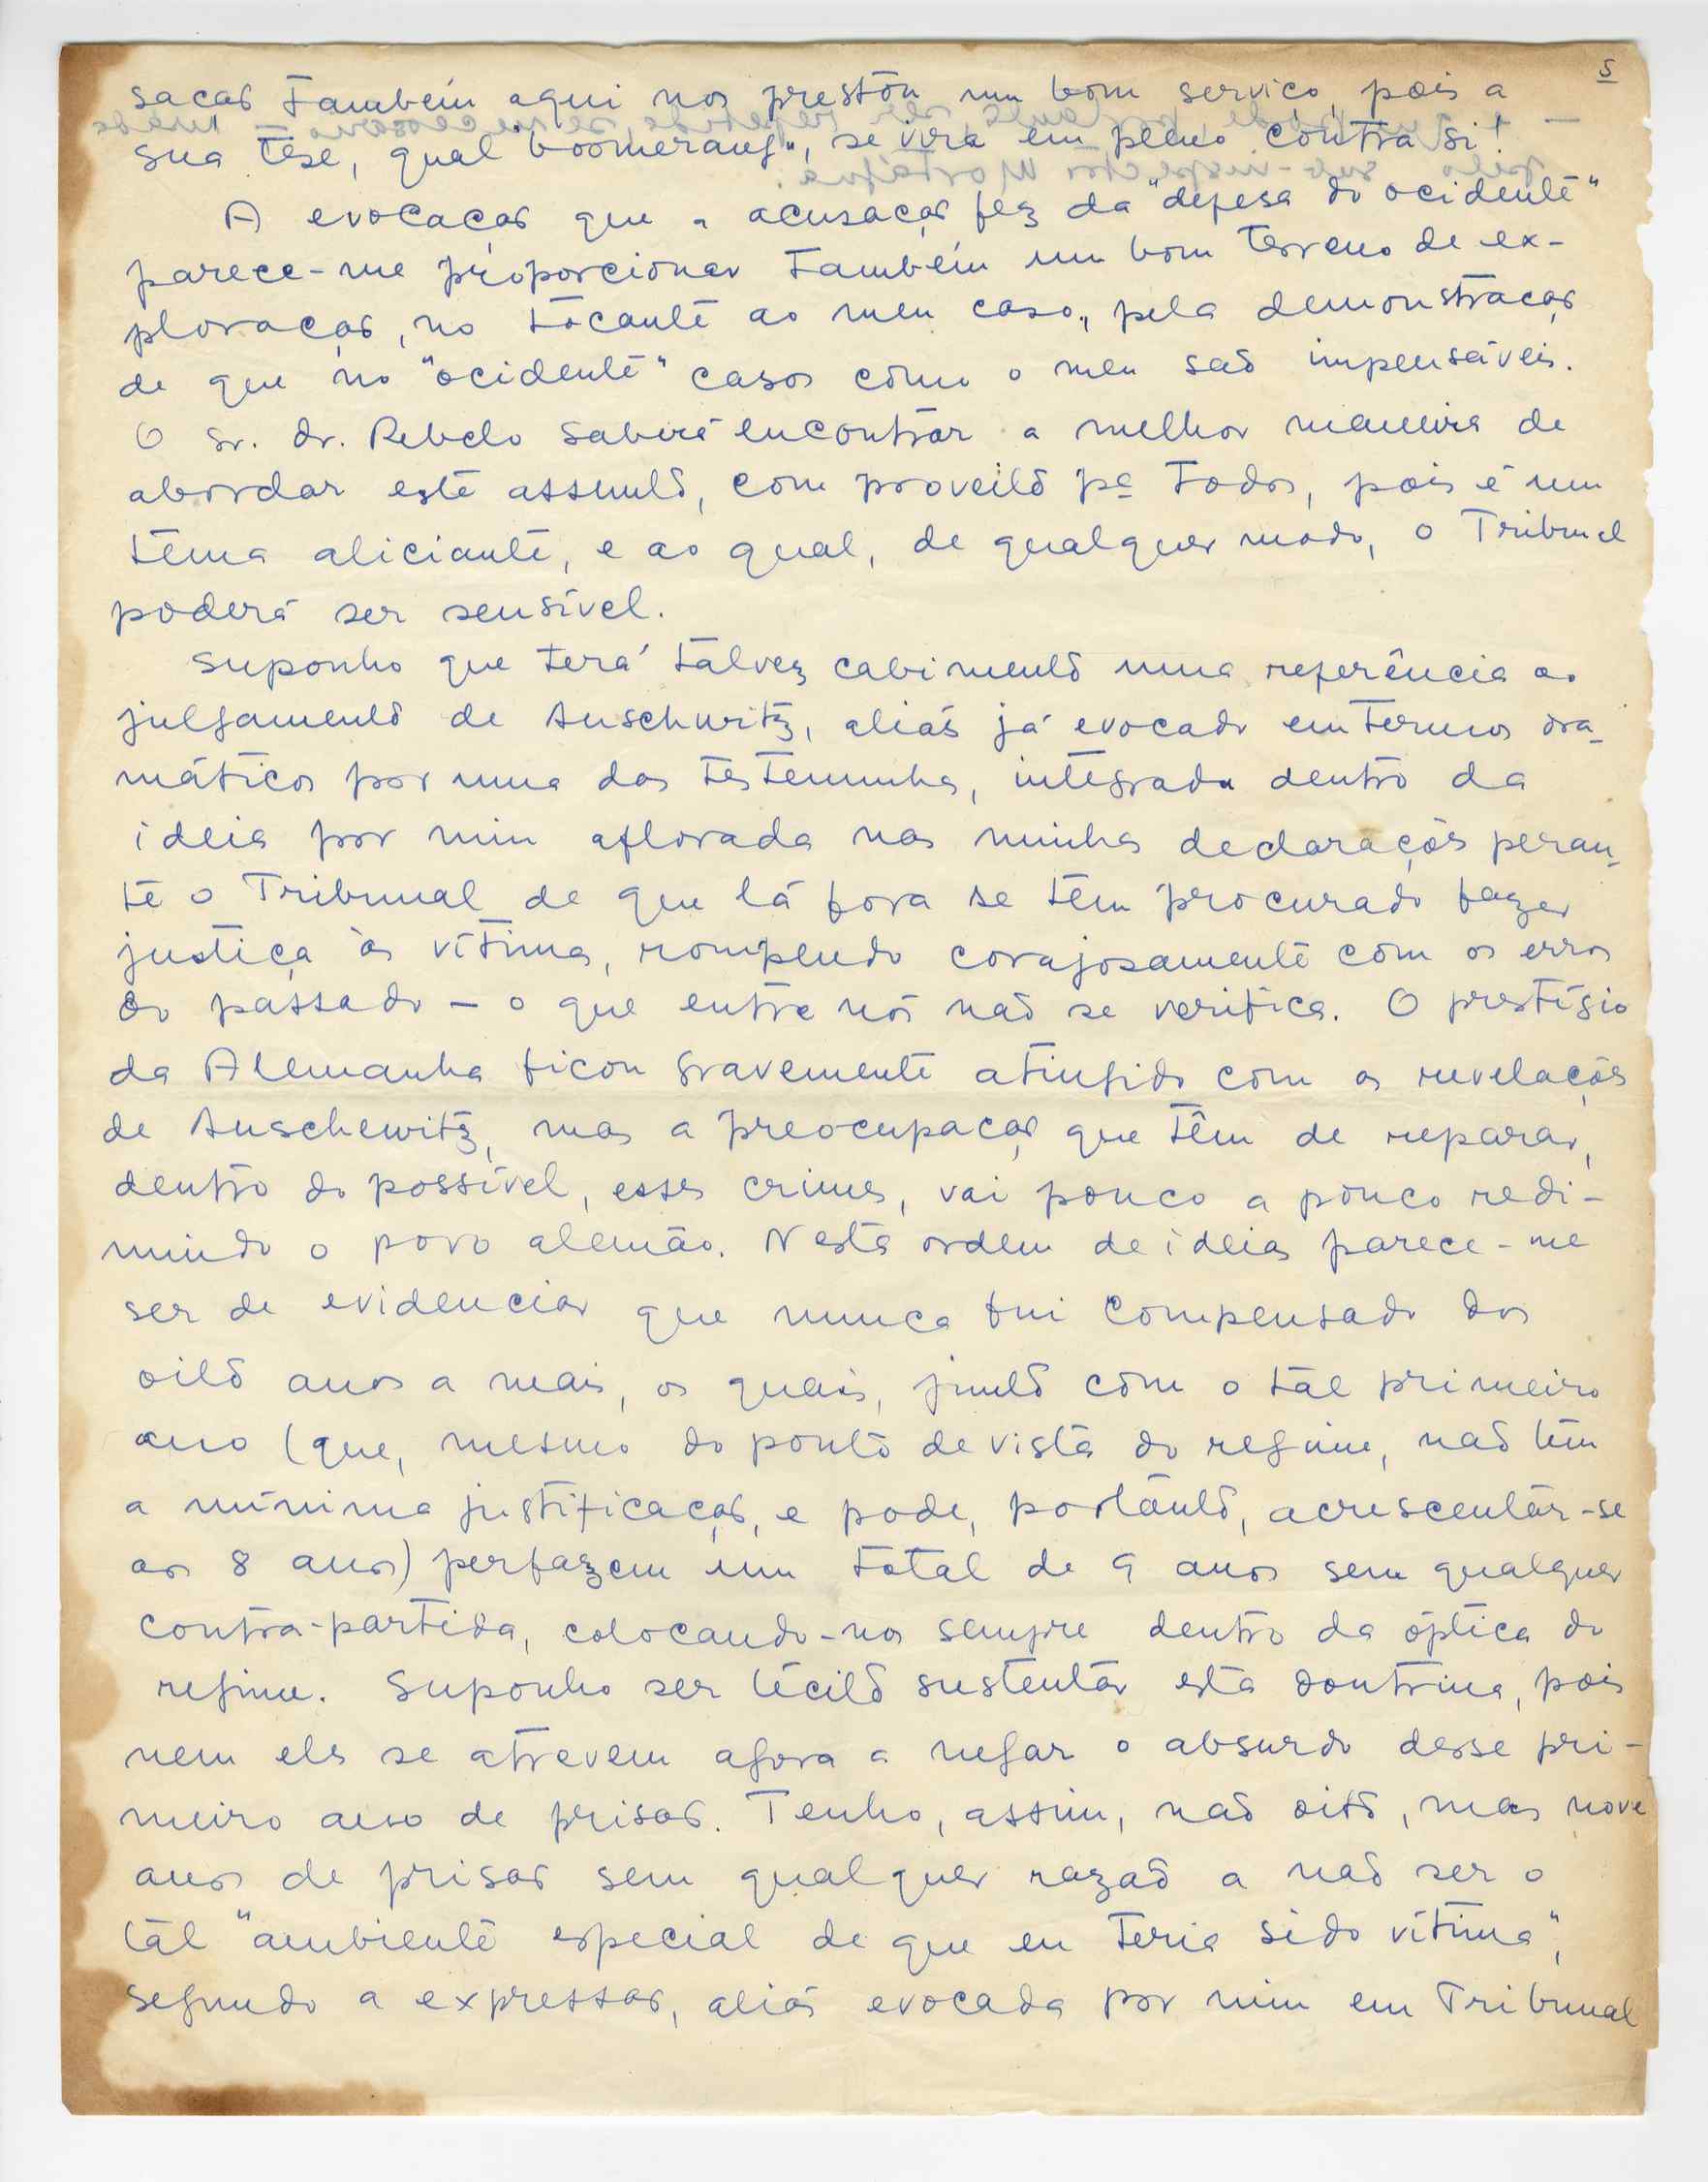 5
sação também aqui nos prestou um bom serviço, pois a
sua tese, qual "boomerang", se vira em pleno contra si!
A evocação que a acusação fez da "defesa do ocidente"
parece-me proporcionar também um bom terreno de ex-
ploração, no tocante ao meu caso, pela demonstração
de que no "ocidente" casos como o meu são impensáveis.
O sr. dr. Rebelo saberá encontrar a melhor maneira de
abordar este assunto, com proveito pª todos, pois é um
tema aliciante, e ao qual, de qualquer modo, o Tribunal
poderá ser sensível.
Suponho que terá talvez cabimento uma referência ao
julgamento de Auschwitz, aliás já evocado em termos dra-
máticos por uma das testemunhas, integrada dentro da
ideia por mim aflorada nas minhas declarações peran-
te o Tribunal de que lá fora se têm procurado fazer
justiça às vítimas, rompendo corajosamente com os erros
do passado — o que entre nós não se verifica. O prestígio
da Alemanha ficou gravemente atingido com as revelações
de Auschewitz, mas a preocupação que têm de reparar,
dentro do possível, esses crimes, vai pouco a pouco redi-
mindo o povo alemão. Nesta ordem de ideias parece-me
ser de evidenciar que nunca fui compensado dos
oito anos a mais, os quais, junto com o tal primeiro
ano (que, mesmo do ponto de vista do regime, não têm
a mínima justificação, e pode, portanto, acrescentar-se
aos 8 anos) perfazem um total de 9 anos sem qualquer
contra-partida, colocando-nos sempre dentro da óptica do
regime. Suponho ser lícito sustentar esta doutrina, pois
nem eles se atrevem agora a negar o absurdo desse pri-
meiro ano de prisão. Tenho, assim, não oito, mas nove
anos de prisão sem qualquer razão a não ser o
tal "ambiente especial de que eu teria sido vítima",
segundo a expressão, aliás evocada por mim em Tribunal